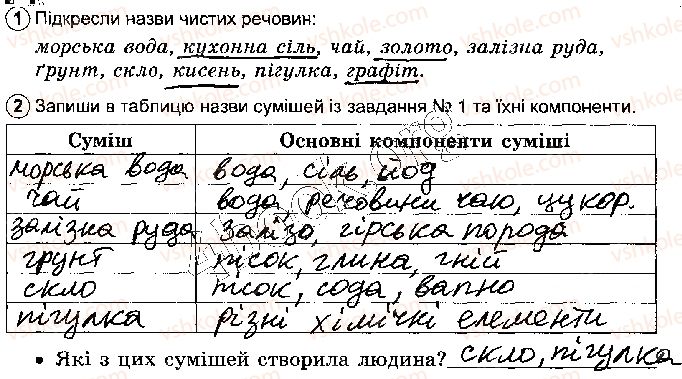 1 Підкресли назви чистих речовин:
морська вода, кухонна сіль, чай, золото, залізна руда,
ґрунт, скло, кисень, пігулка, графіт.
2 Запиши в таблицю назви сумішей із завдання № 1 та їхні компоненти.
Суміш Основні компоненти суміші
морська вода вода, сіль, йод
чай вода, речовини чаю, цукор.
залізна руда залізо, гірська порода
грунт пісок, глина, гній
скло пісок, сода, вапно
пігулка різні хімічкі елементи
• Які з цих сумішей створила людина? скло, пігулка